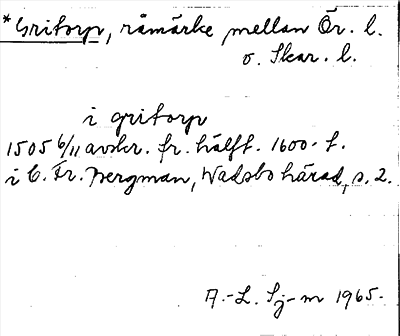 *Gritorp, råmärke mellan Ör. l.
o. Skar. l.
i gritorp
1505 6/11 avskr. fr. hälft. 1600-t.
i C. Fr. Bergman, Wadsbo härad, s. 2.
A.-L. Sj-m 1965.